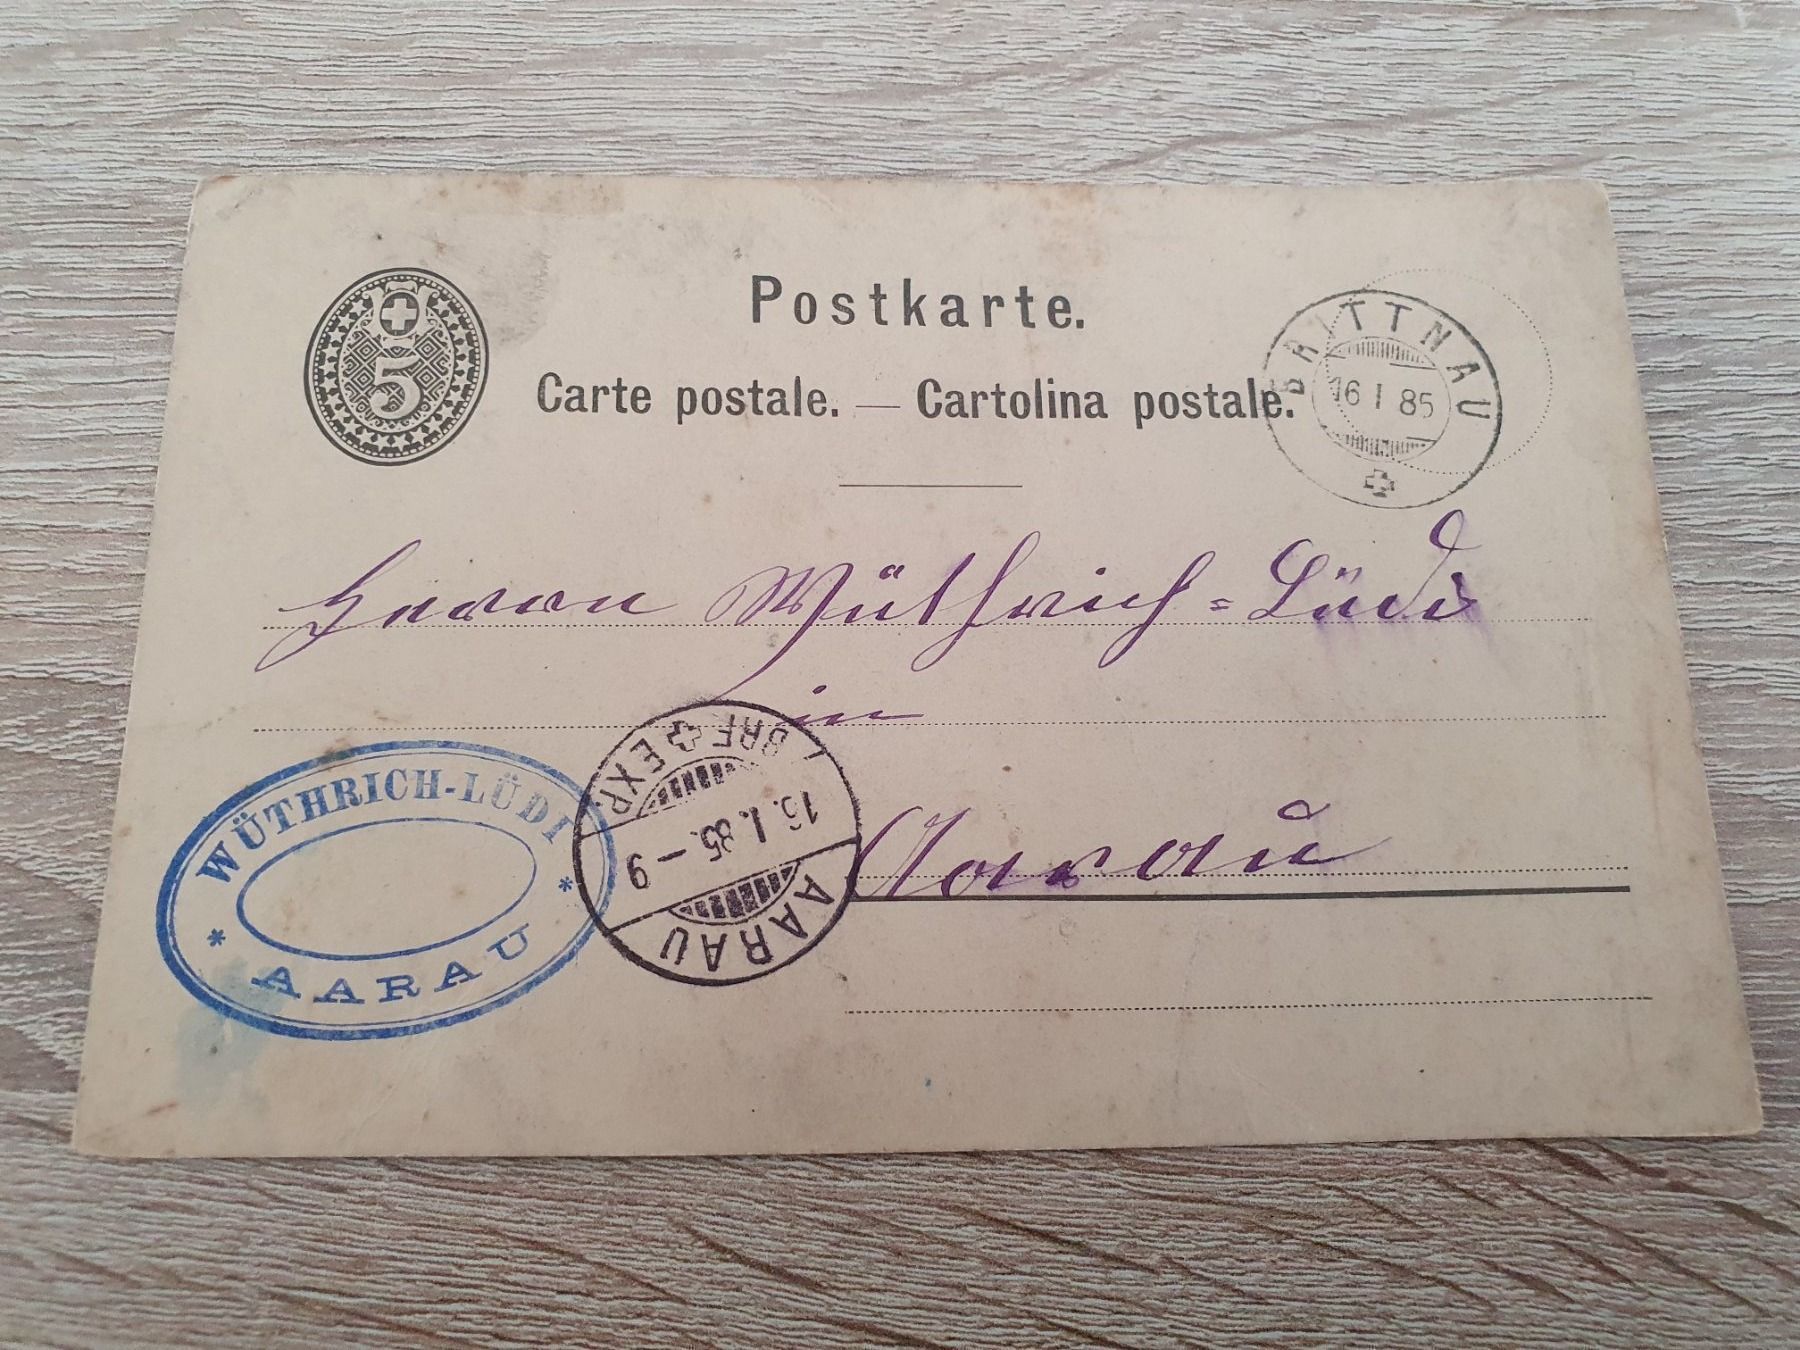 5
Postkarte.
Carte postale. — Cartolina postale.
BRITTNAU
16 I 85
Herrn Wüthrich=Lüdi
in
Aarau
WÜTHRICH-LÜDI
* AARAU *
AARAU
16.I.85.–9
BRF. EXP.